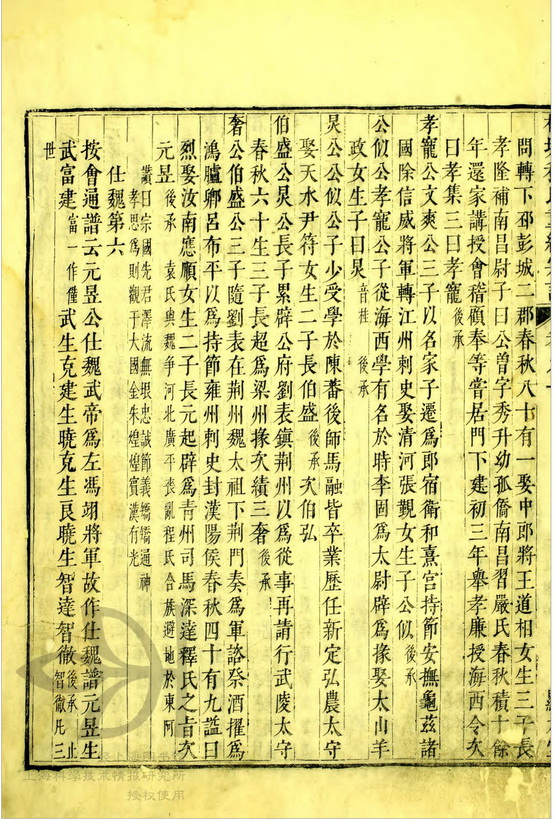 問轉下邳彭城二郡春秋八十有一娶中郎將王道相女生三子長
孝隆補南昌尉子曰公曽字秀升幼孤僑南昌習嚴氏春秋積十餘
年還家講授會稽顧奉等嘗居門下建初三年舉孝廉授海西令次
曰孝集三曰孝寵後承
孝寵公文爽公三子以名家子遷為郎宿衛和熹宫持節安撫龜玆諸
國除信威將軍轉江州刺史娶清河張覲女生子公似後承
公似公孝寵公子從海西學有名於時李固為太尉辟為掾娶太山羊
政女生子曰炅音桂後承
炅公公似公子少受學於陳蕃後師馬融皆卒業歷任新定弘農太守
娶天水尹符女生二子長伯盛後承次伯弘
伯盛公炅公長子累辟公府劉表鎮荆州以為從事再請行武陵太守
春秋六十生三子長超為梁州掾次績三奢後承
奢公伯盛公三子隨劉表在荆州魏太祖下荆門奏為軍諮祭酒擢為
鴻臚卿吕布平以為持節雍州刺史封漢陽侯春秋四十有九諡曰
烈娶汝南應順女生二子長元起辟為青州司馬深達釋氏之旨次
元昱後承袁氏與魏爭河北廣平喪亂程氏合族避地於東阿
讚曰宗國先君澤流無垠忠誠節義矯矯通神
孝思為則觀于大國金朱煌煌賓漢有光
仕魏第六
按會通譜云元昱公仕魏武帝為左馮翊將軍故作仕魏譜元昱生
武富建富一作僅武生克建生曉克生艮曉生智達智徹後承止智徹凡三
世
上海科學技術情報研究所
授权使用